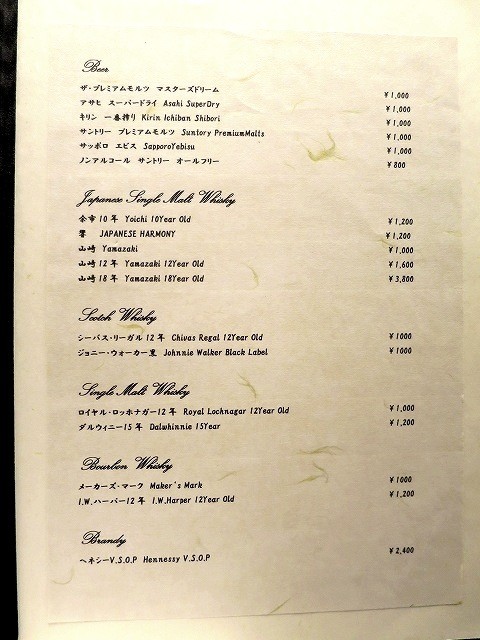 Beer
ザ・プレミアムモルツ マスターズドリーム ￥1,000
アサヒ スーパードライ Asahi SuperDry ￥1,000
キリン 一番搾り Kirin Ichiban Shibori ￥1,000
サントリー プレミアムモルツ Suntory PremiumMalts ￥1,000
サッポロ エビス SapporoYebisu ￥1,000
ノンアルコール サントリー オールフリー ￥800
Japanese Single Malt Whisky
余市10年 Yoichi 10Year Old ￥1,200
響 JAPANESE HARMONY ￥1,200
山崎 Yamazaki ￥1,000
山崎12年 Yamazaki 12Year Old ￥1,600
山崎18年 Yamazaki 18Year Old ￥3,800
Scotch Whisky
シーバス・リーガル 12年 Chivas Regal 12Year Old ￥1000
ジョニー・ウォーカー黒 Johnnie Walker Black Label ￥1000
Single Malt Whisky
ロイヤル・ロッホナガー12年 Royal Lochnagar 12Year Old ￥1,000
ダルウィニー15年 Dalwhinnie 15Year ￥1,200
Bourbon Whisky
メーカーズ・マーク Maker's Mark ￥1000
I.W.ハーパー12年 I.W.Harper 12Year Old ￥1,200
Brandy
ヘネシーV.S.O.P Hennessy V.S.O.P ￥2,400